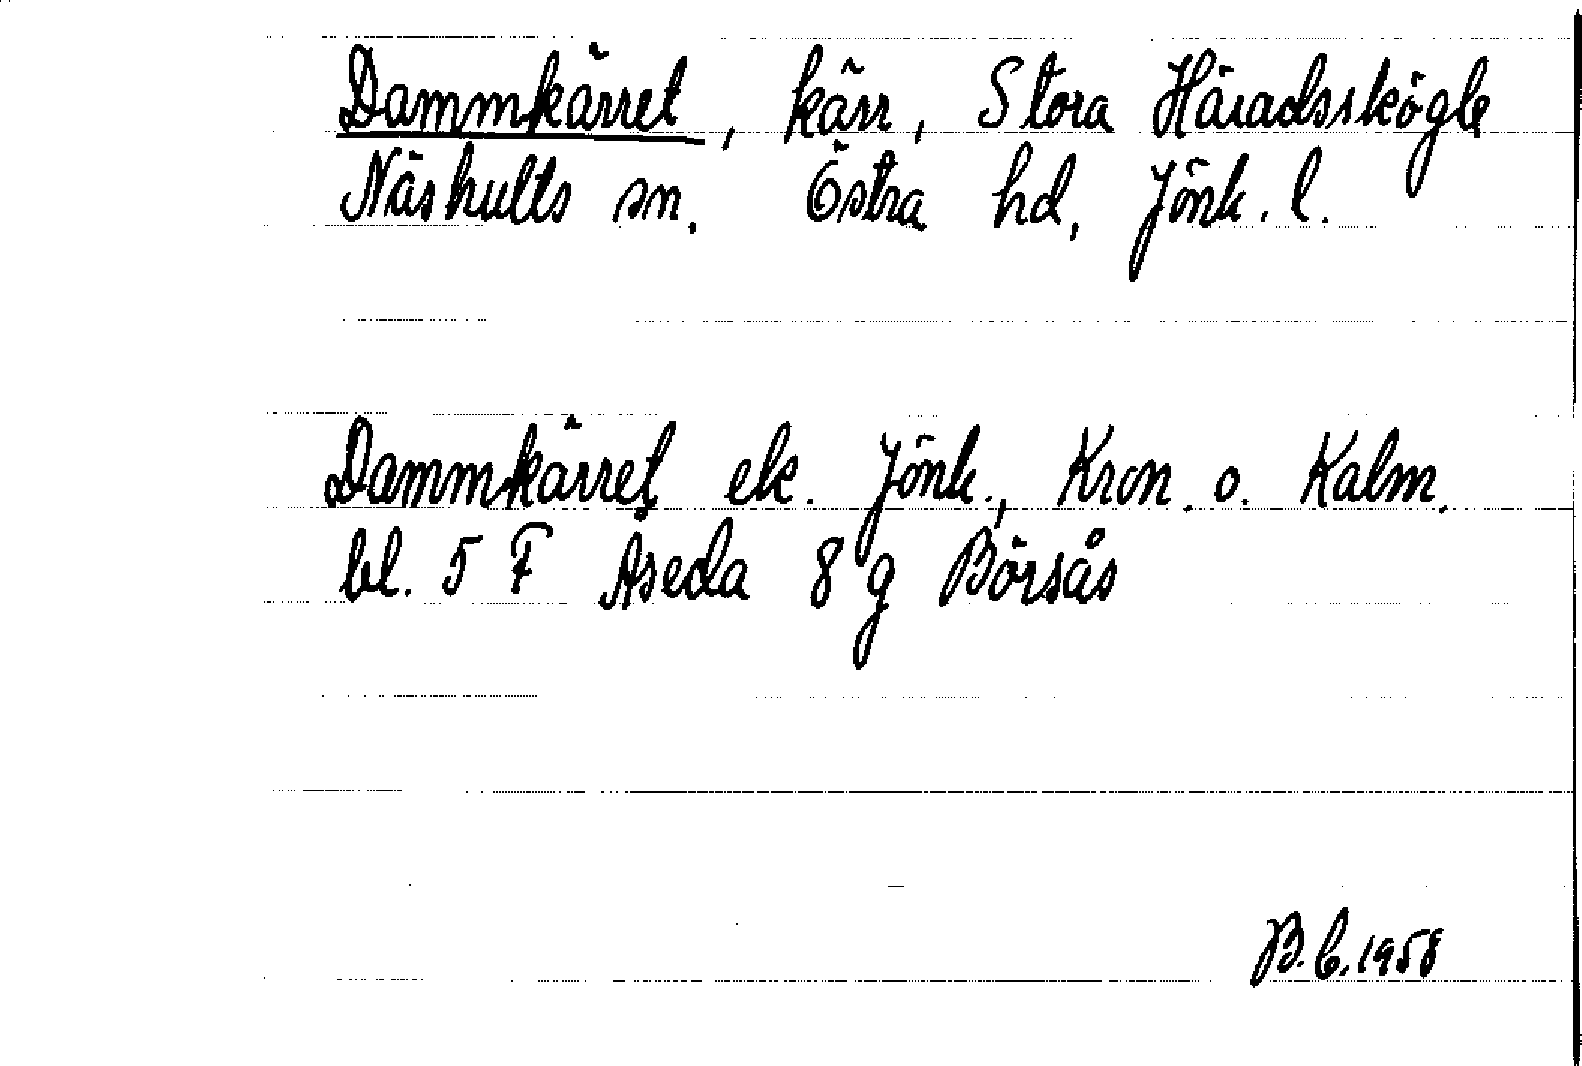 Dammkärret, kärr, Stora Häradsskögle
Näshults sn. Östra hd, Jönk. l.
Dammkärret ek. Jönk., Kron. o. Kalm.
bl. 5 F Åseda 8 g Börsås
B.C. 1958